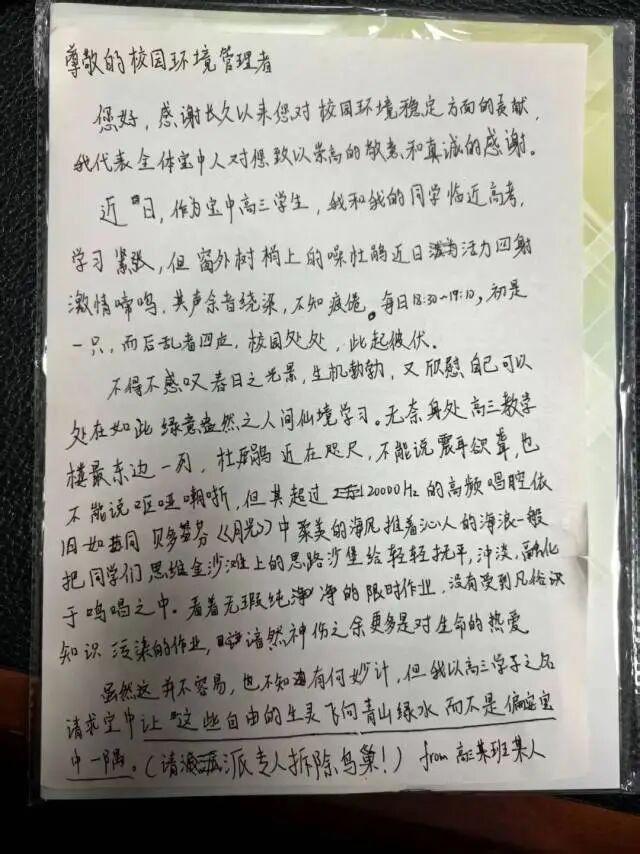 尊敬的校园环境管理者
您好，感谢长久以来您对校园环境稳定方面的贡献，
我代表全体宝中人对您致以崇高的敬意和真诚的感谢。
近日，作为宝中高三学生，我和我的同学临近高考，
学习紧张，但窗外树梢上的噪杜鹃近日活力四射
激情啼鸣，其声余音绕梁，不知疲倦。每日18:30~19:10，初是
一只，而后乱者四应，校园处处，此起彼伏。
不得不感叹春日之光景，生机勃勃，又欣慰自己可以
处在如此绿意盎然之人间仙境学习。无奈身处高三教学
楼最东边一列，杜鹃近在咫尺，不能说震耳欲聋，也
不能说呕哑嘲哳，但其超过20000Hz的高频唱腔依
旧如同贝多芬《月光》中聚美的海风推着沁人的海浪一般
把同学们思维金沙滩上的思路沙堡给轻轻抚平，冲淡，融化
于鸣唱之中。看着无瑕纯净的限时作业，没有受到凡俗识
知识污染的作业，暗然神伤之余更多是对生命的热爱
虽然这并不容易，也不知有何妙计，但我以高三学子之名
请求宝中让这些自由的生灵飞向青山绿水而不是偏宝宝
中一隅。（请派专人拆除鸟巢！）from高三某班某人